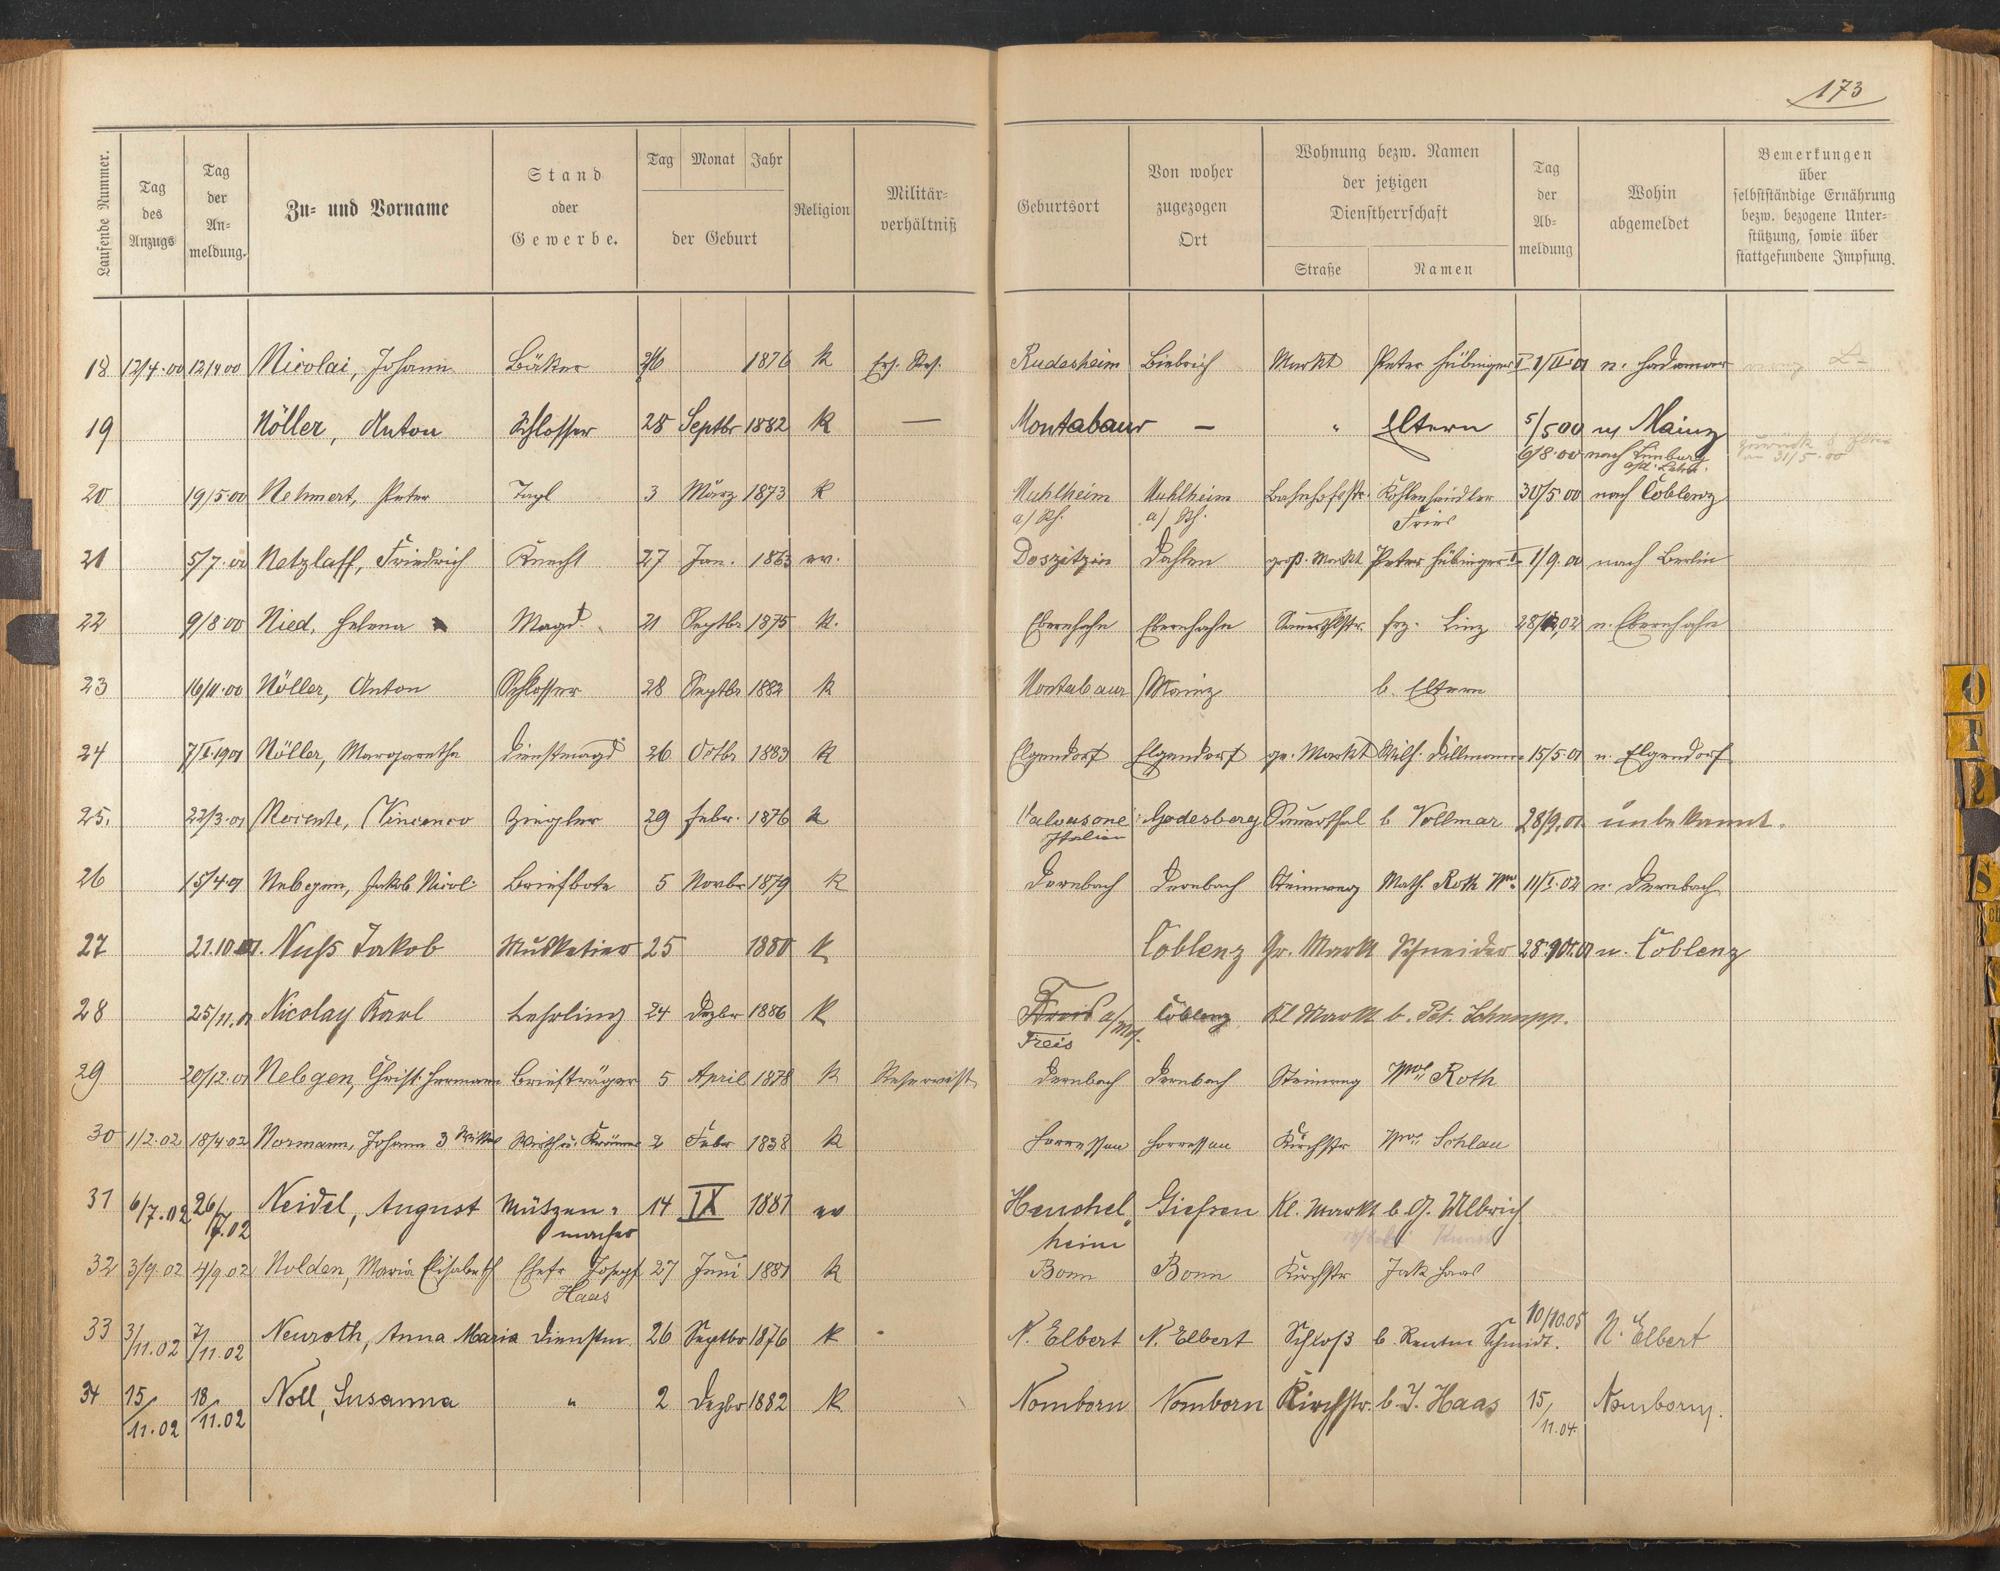 173
Laufende Nummer. Tag des Anzugs Tag der An-meldung. Zu- und Vorname Stand oder Gewerbe. Tag Monat Jahr der Geburt Religion Militär-verhältniß Geburtsort Von woher zugezogen Ort Wohnung bezw. Namen der jetzigen Dienstherrschaft Straße Namen Tag der Ab-meldung Wohin abgemeldet Bemerkungen über selbstständige Ernährung bezw. bezogene Unter-stützung, sowie über stattgefundene Impfung.
18 12/4.00 12/4 00 Nicolai, Johann Bäker 1876 k Ers. Res. Rudesheim Biebrich Markt Peter Hübinger I 1/II 01 n. Hadamar
19 Nöller, Anton Schlosser 28 Septbr 1882 k — Montabaur — " Eltern 5/5 00 n/ Mainz
6/8.00 nach Limburg
20 19/5 00 Nehmert, Peter Tagl 3 März 1873 k Muhlheim Muhlheim Bahnhofstr. Kohlenhändler 30/5.00 nach Coblenz
a/Rh. a/Rh. Fries
21 5/7.00 Netzlaff, Friedrich Knecht 27 Jan. 1863 ev. Doszitzin Dahlen groß. Markt Peter Hübinger I 1/9.00 nach Berlin
22 9/8 00 Nied, Helena Magd 21 Septbr 1875 k. Ebernhahn Ebernhahn Sauerthlstr. Frz. Linz n. Ebernhahn
23 16/11.00 Nöller, Anton Schlosser 28 Septbr 1882 k Montabaur Mainz b. Eltern
24 7/I.1901 Nöller, Margaretha Dienstmagd 26 Octbr 1883 k Elgendorf Elgendorf gr. Markt Wilh. Dillmann 15/5.01 n. Elgendorf
25. 22/3.01 Vincenco Ziegler 29 Febr. 1876 k Valvasone Godesberg Sauerthal b Vollmar 28/9.01. unbekannt.
Italien
26 15/4.01 Nebgen, Jakob Nicol: Briefbote 5 Novbr 1879 k Dernbach Dernbach Steinweg Math. Roth Wwe. 11/I.02 n. Dernbach
27 21.10.01. Nuß Jakob Musketier 25 1880 k Coblenz Gr. Markt Schneider n. Coblenz
28 25/11.01 Nicolay Karl Lehrling 24 Dezbr 1886 k a/Mos. Coblenz Kl Markt b. Pet. Schnupp.
Treis
29 20/12.01 Nebgen, Christ. Hermann Briefträger 5 April 1878 k Reservist Dernbach Dernbach Steinweg Wwe Roth
30 1/2.02 18/4.02 Normann, Johann 3 Wittwe 2 Febr 1838 k Horressen Horressen Kirchstr Wwe Schlau
31 6/7.02 26/7.02 Neidel, August Mützen- 14 IX 1881 ev Heuchel- Giessen Kl. Markt b G. Ulbrich
macher heim
32 3/9.02 4/9.02 Nolden, Maria Elisabeth Ehefr Joseph 27 Juni 1881 k Bonn Bonn Kirchstr Jak Haas
Haas
33 3/11.02 7/11.02 Neuroth, Anna Maria Dienstm. 26 Septbr 1876 k N. Elbert N. Elbert Schloß b. Rentm Schmidt. 10/10.05 N. Elbert
34 15/11.02 18/11.02 Noll, Susanna " 2 Dezbr 1882 k Nomborn Nomborn Kirchstr. b. J. Haas 15/11.04. Nomborn.